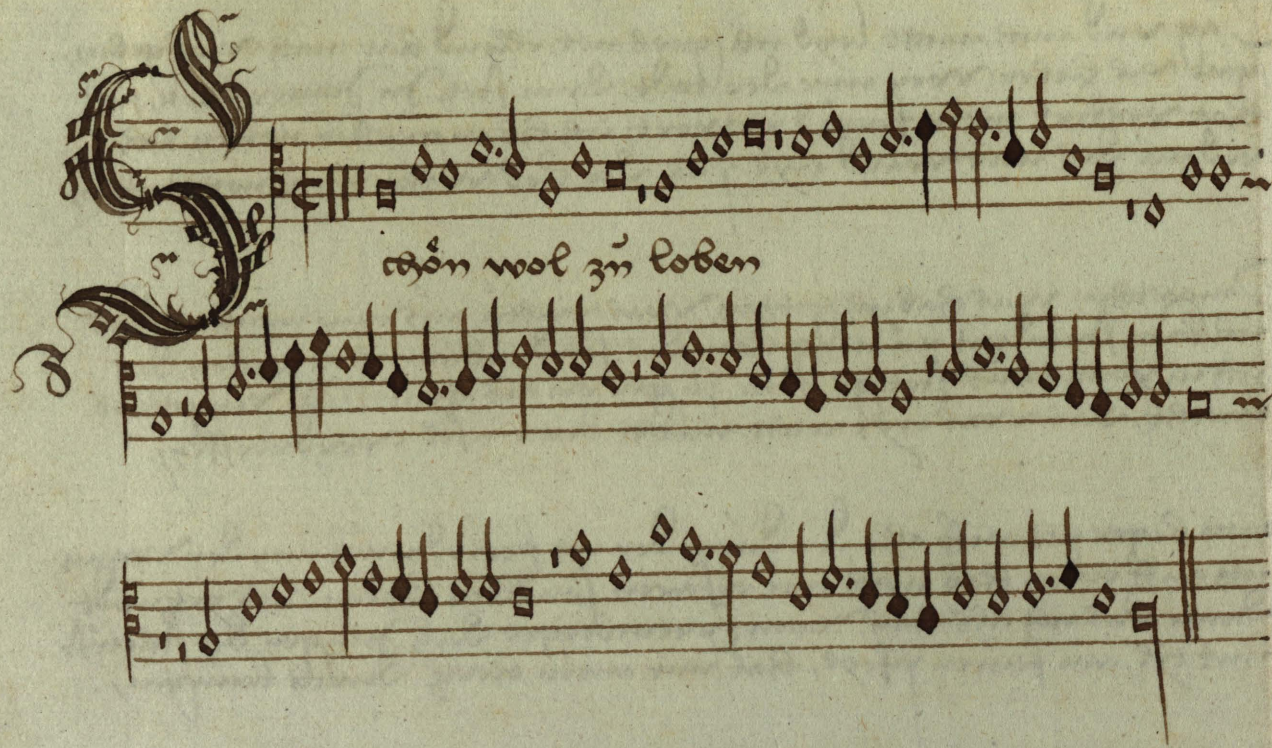 Schőn wol zů loben